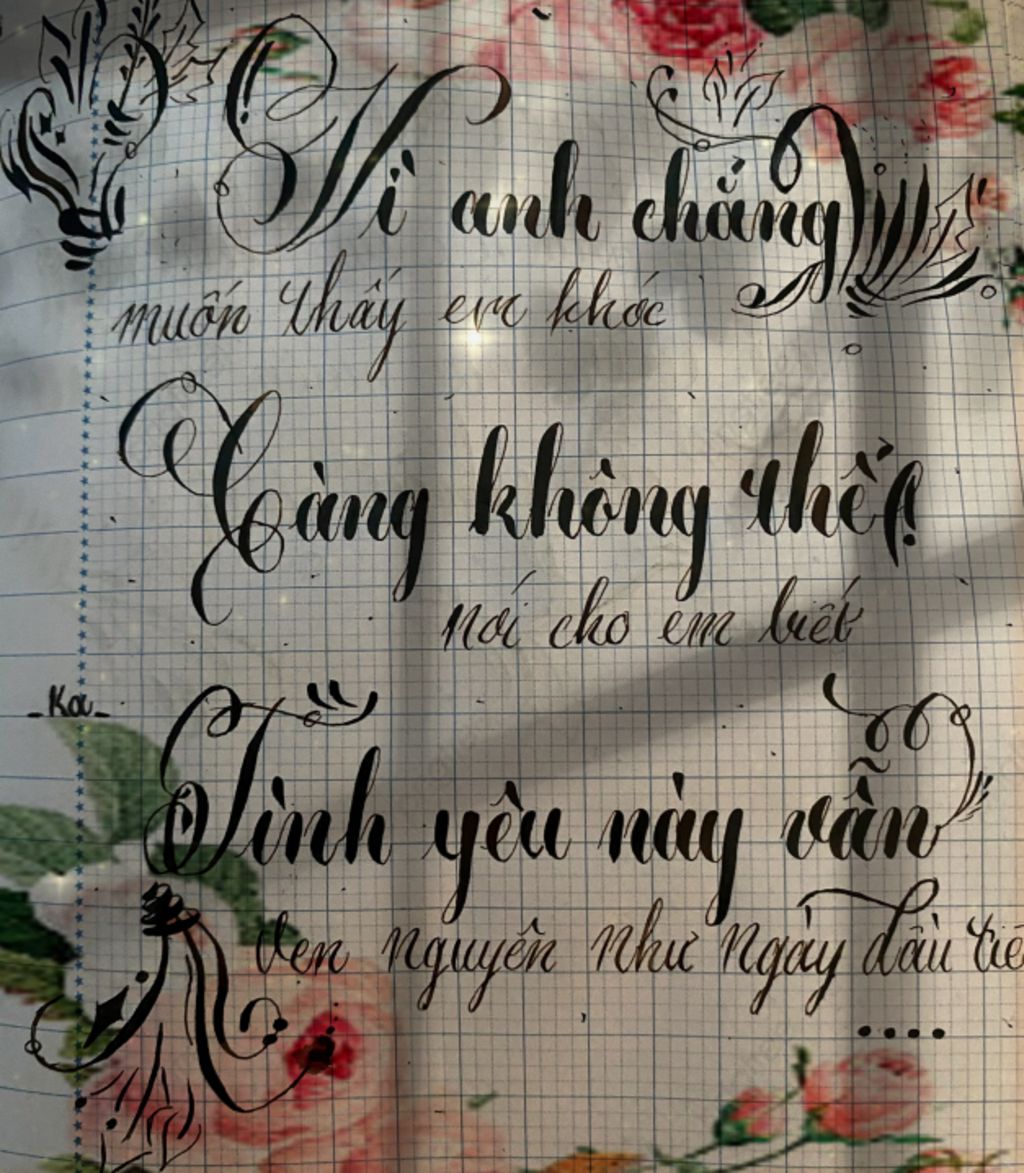 Vì anh chẳng
muốn thấy em khóc
Càng không thể
nói cho em biết
_Kai_
Tình yêu này vẫn
vẹn nguyên như ngày đầu
....